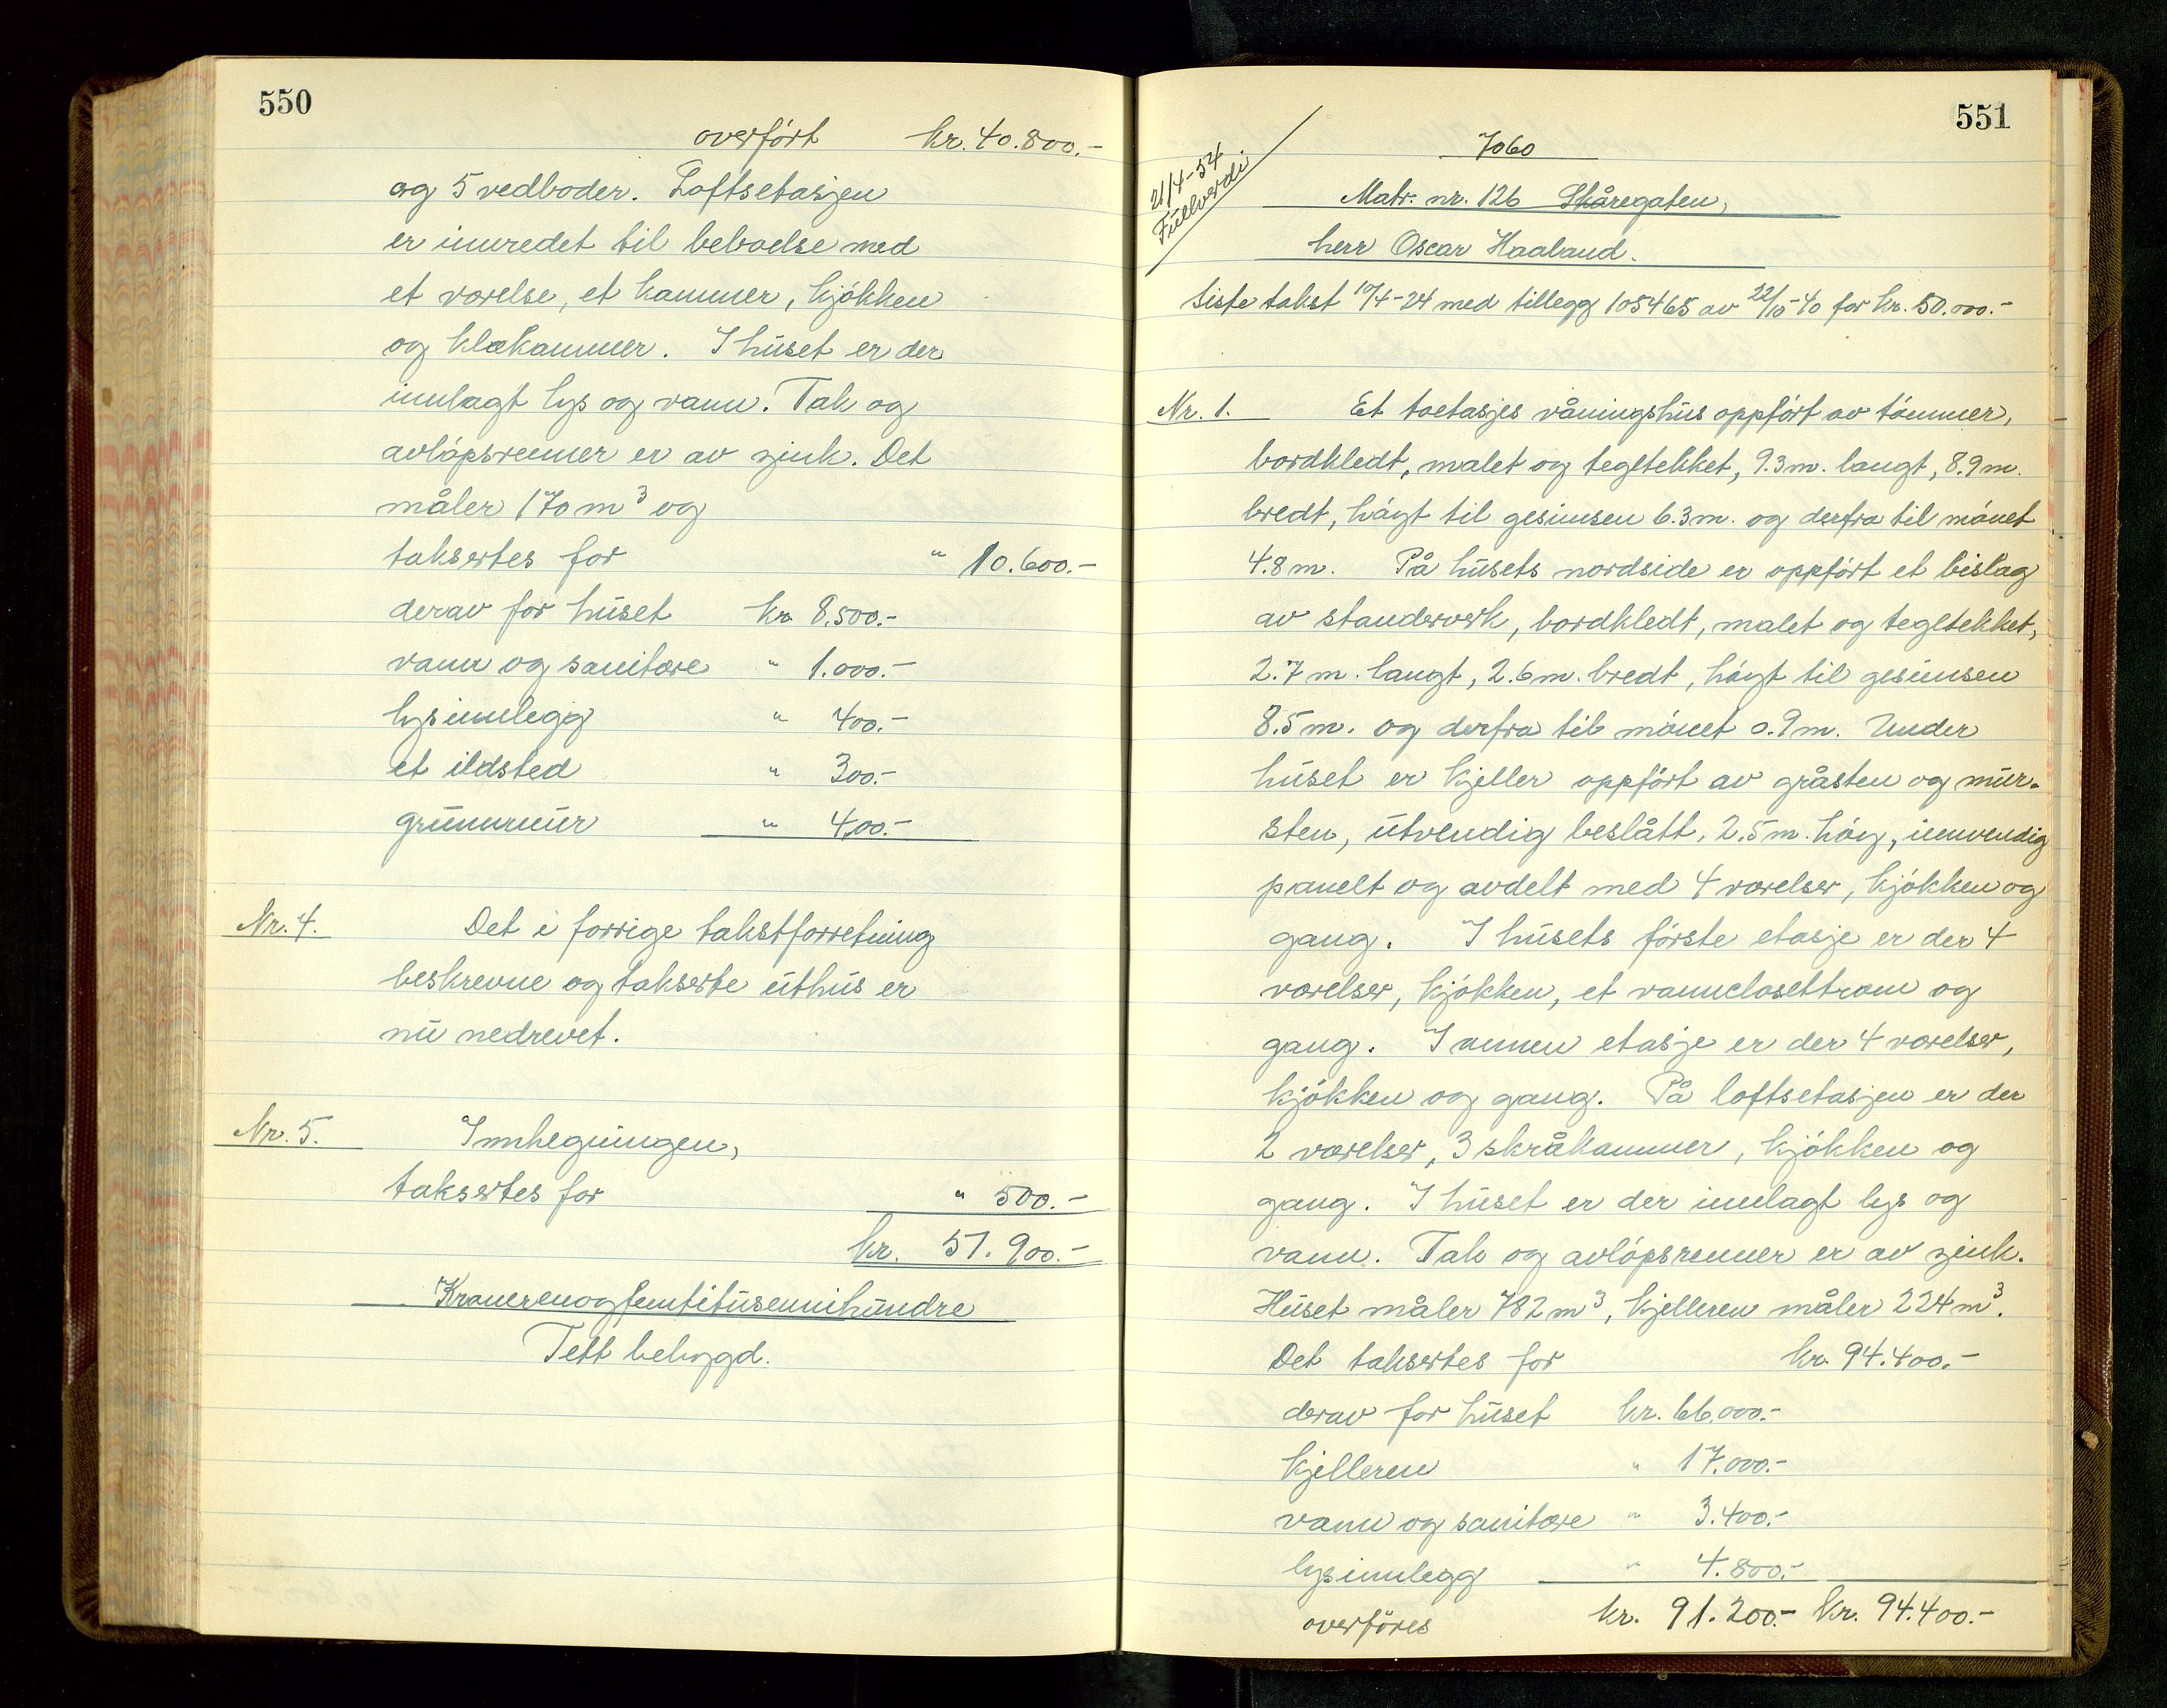 550
overført kr. 40.800.-
og 5 vedboder. Loftsetasjen
er innredet til beboelse med
et værelse, et kammer, kjøkken
og klækammer. I huset er der
innlagt lys og vann. Tak og
avløpsrenner er av zink. Det
måler 170 m³ og
taksertes for " 10.600.-
derav for huset kr. 8.500.-
vann og sanitære " 1.000.-
lysinnlegg " 400.-
et ildsted " 300.-
grunnmur " 400.-
Nr. 4. Det i forrige takstforretning
beskrevne og takserte uthus er
nu nedrevet.
Nr. 5. Innhegningen,
taksertes for " 500.-
kr. 51.900.-
Kronerenogfemtitusennihundre
Tett bebygd.
551
21/4-54
Fullverdi
7060
Matr. nr. 126 Skåregaten,
herr Oscar Haaland.
Siste takst 10/4-24 med tillegg 105465 av 22/10-40 for kr. 50.000.-
Nr. 1. Et toetasjes våningshus oppført av tømmer,
bordkledt, malet og tegltekket, 9.3 m. langt, 8.9 m.
bredt, høgt til gesimsen 6.3 m. og derfra til mønet
4.8 m. På husets nordside er oppført et bislag
av standerverk, bordkledt, malet og tegltekket,
2.7 m. langt, 2.6 m. bredt, høgt til gesimsen
8.5 m. og derfra til mønet 0.9 m. Under
huset er kjeller oppført av gråsten og mur-
sten, utvendig beslått, 2.5 m. høg, innvendig
panelt og avdelt med 4 værelser, kjøkken og
gang. I husets første etasje er der 4
værelser, kjøkken, et vannclosettrom og
gang. I annen etasje er der 4 værelser,
kjøkken og gang. På loftsetasjen er der
2 værelser, 3 skråkammer, kjøkken og
gang. I huset er der innlagt lys og
vann. Tak og avløpsrenner er av zink.
Huset måler 782 m³, kjelleren måler 224 m³.
Det taksertes for kr. 94.400.-
derav for huset kr. 66.000.-
kjelleren " 17.000.-
vann og sanitære " 3.400.-
lysinnlegg " 4.800.-
overføres kr. 91.200.- kr. 94.400.-